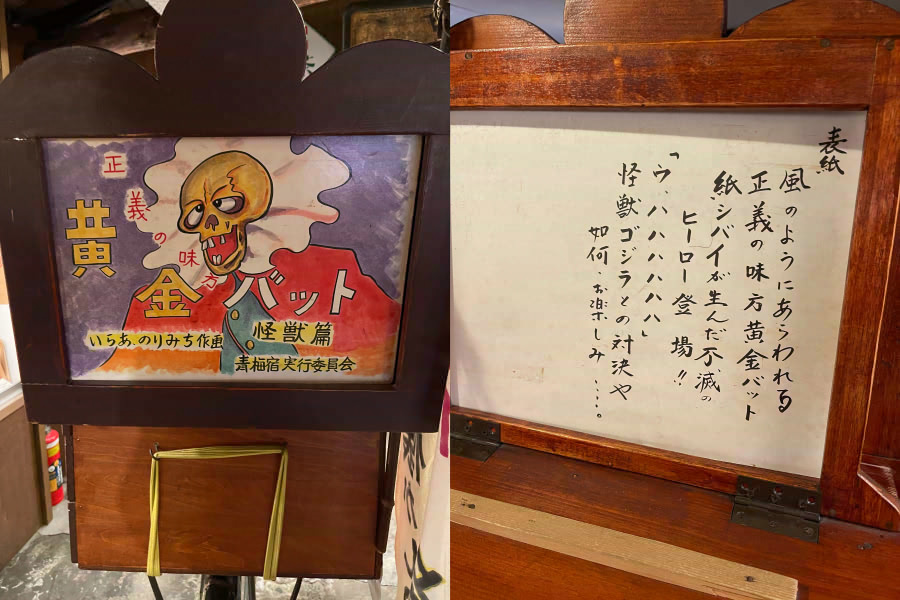 正義の味方
黄金バット
怪獣篇
いらあ、のりみち作画
青梅宿実行委員会
表紙
風のようにあらわれる
正義の味方黄金バット
紙シバイが生んだ不滅の
ヒーロー登場!!
「ウ、ハハハハハ」
怪獣ゴジラとの対決や
如何、お楽しみ……。